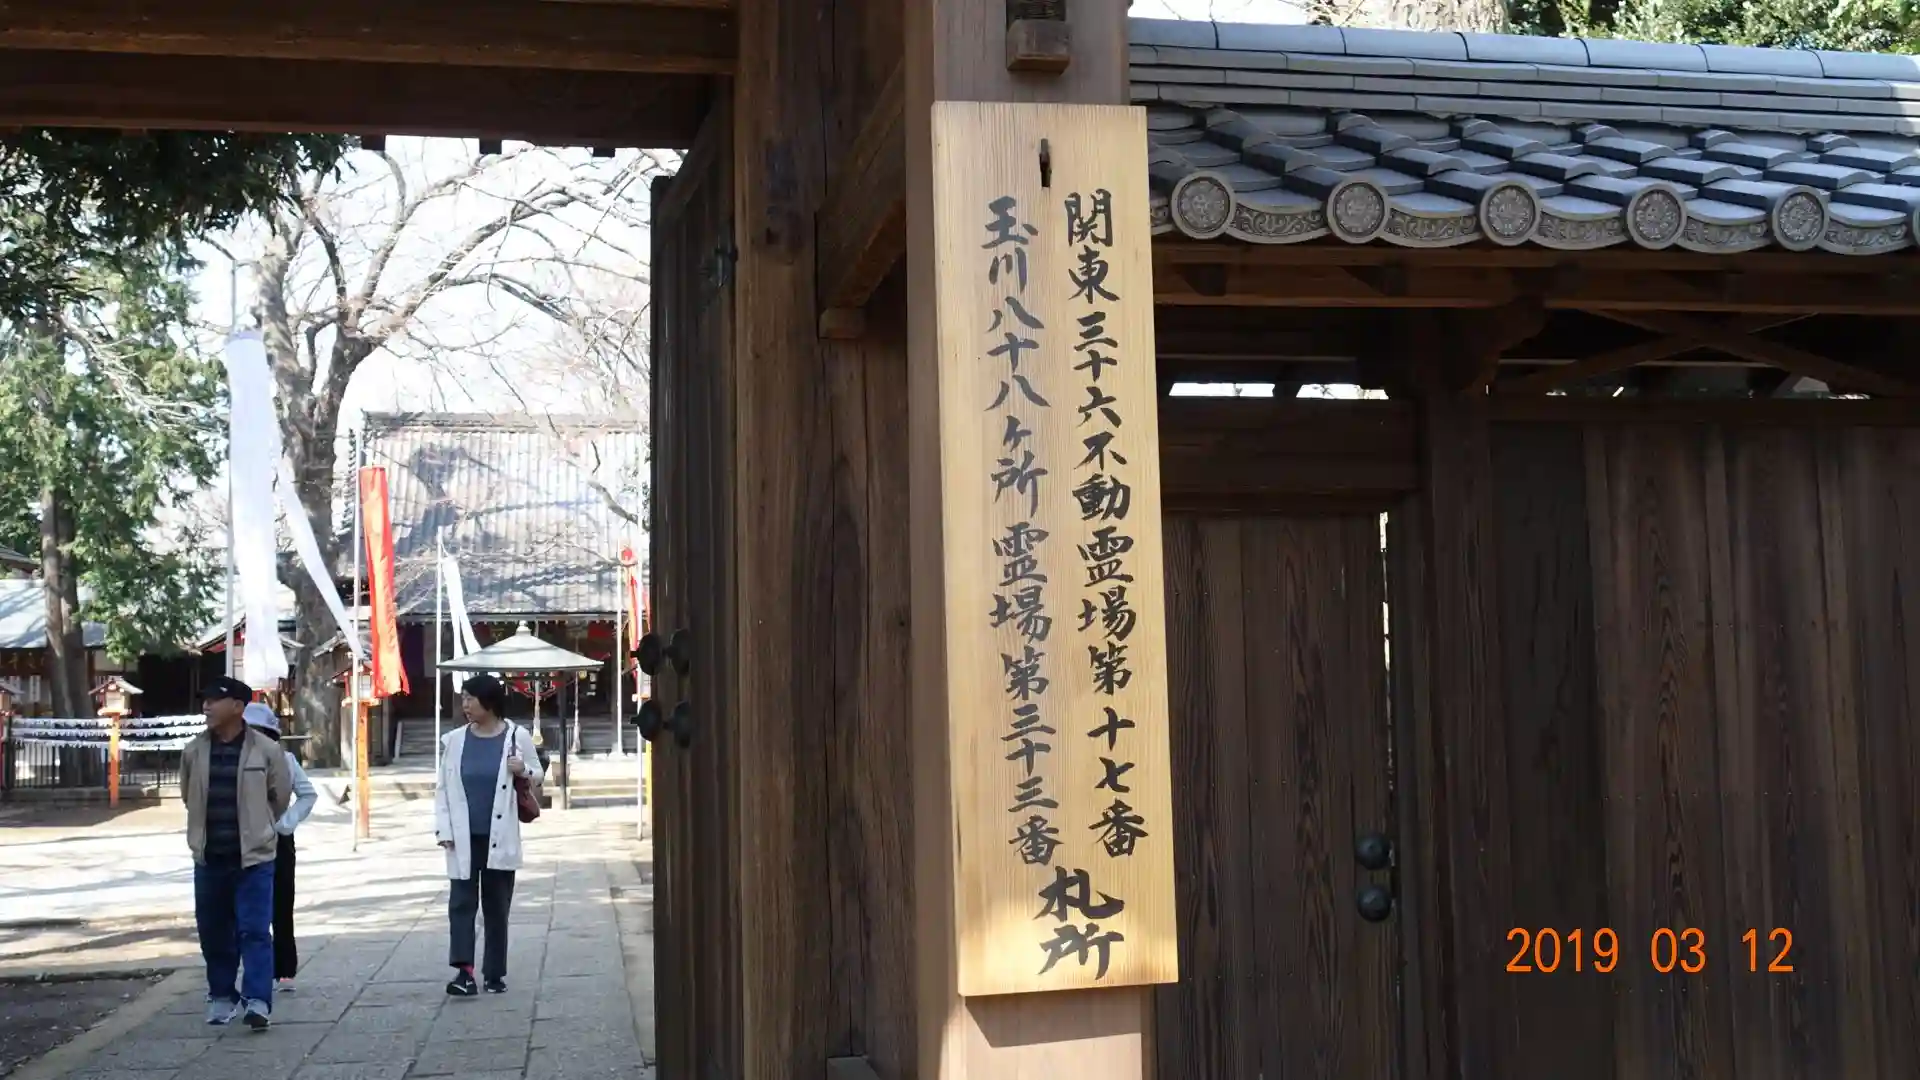 関東三十六不動霊場第十七番
玉川八十八ヶ所霊場第三十三番
札所
2019 03 12